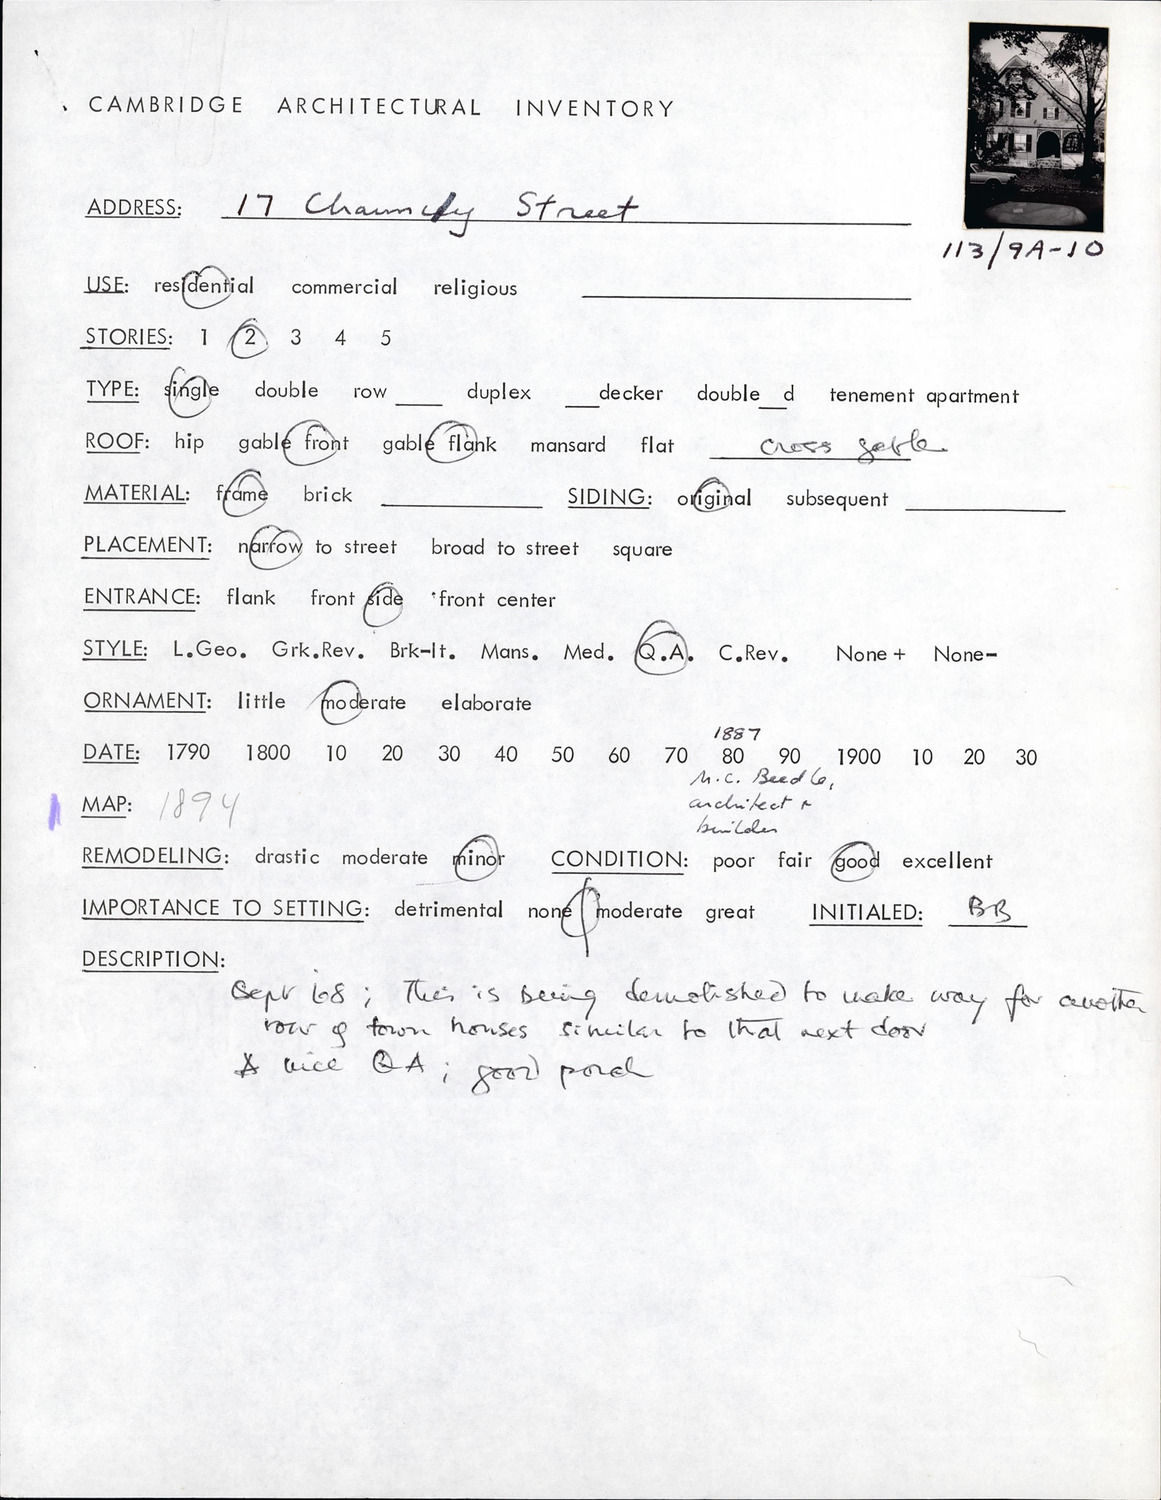 CAMBRIDGE ARCHITECTURAL INVENTORY
ADDRESS: 17 Chauncey Street
113/9A-10
USE: residential commercial religious
STORIES: 1 2 3 4 5
TYPE: single double row ____ duplex ___decker double__d tenement apartment
ROOF: hip gable front gable flank mansard flat cross gable
MATERIAL: frame brick SIDING: original subsequent
PLACEMENT: narrow to street broad to street square
ENTRANCE: flank front side front center
STYLE: L.Geo. Grk.Rev. Brk-It. Mans. Med. Q.A. C.Rev. None+ None-
ORNAMENT: little moderate elaborate
1887
DATE: 1790 1800 10 20 30 40 50 60 70 80 90 1900 10 20 30
architect +
builder
MAP: 1894
REMODELING: drastic moderate minor CONDITION: poor fair good excellent
IMPORTANCE TO SETTING: detrimental none moderate great INITIALED: BB
DESCRIPTION:
Sept 68; This is being demolished to make way for another
row of town houses similar to that next door
A nice QA; good porch